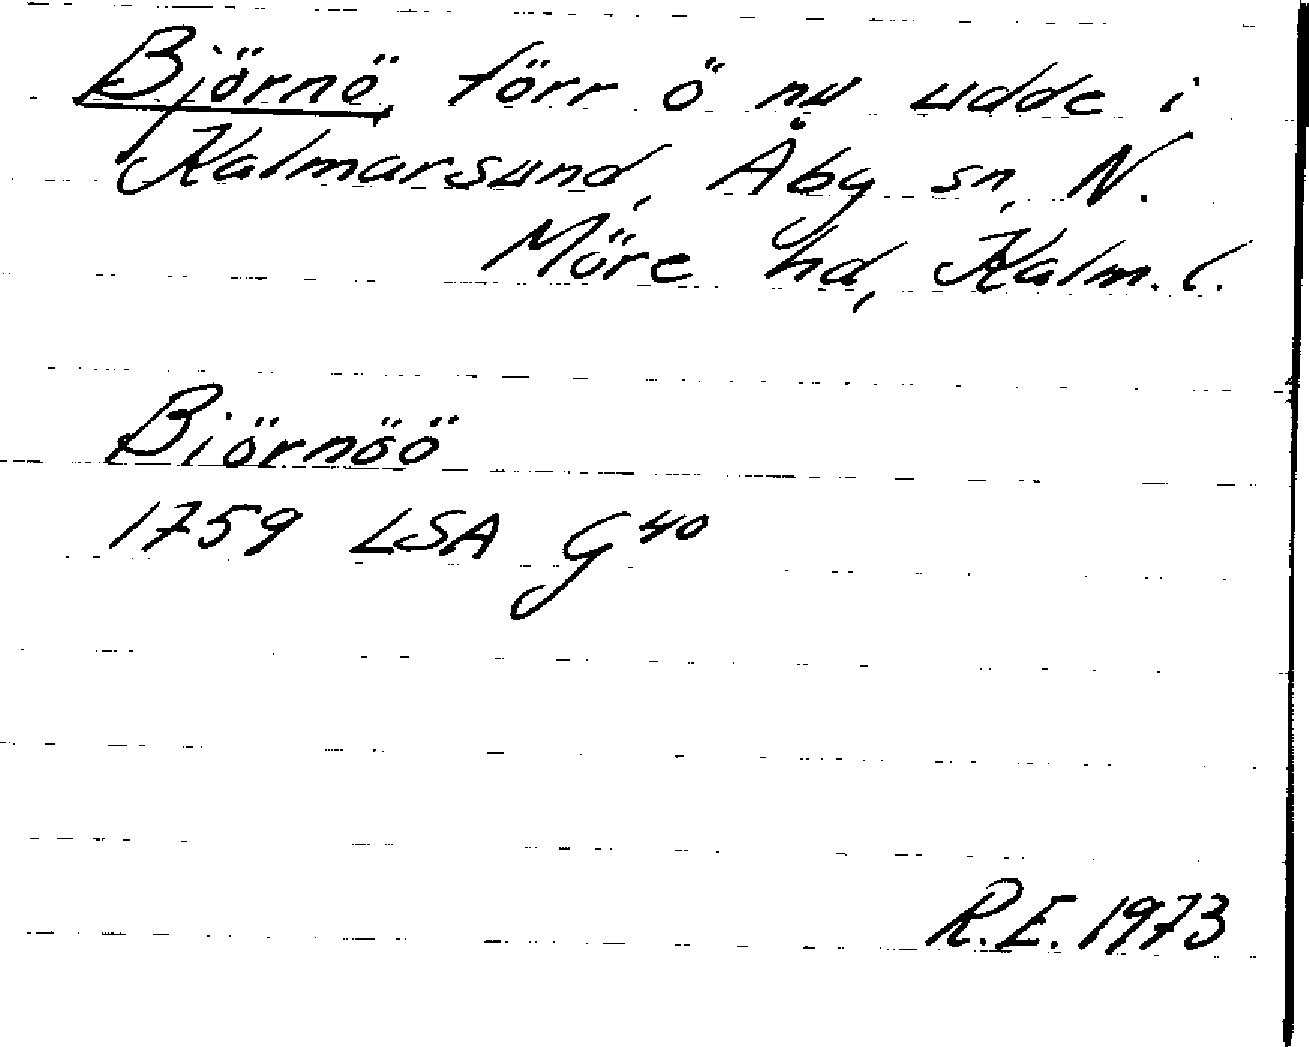 Björnö, förr ö nu udde i
Kalmarsund, Åby sn, N.
Möre hd, Kalm. l.
Biörnöö
1759 LSA G 40
R.E. 1973